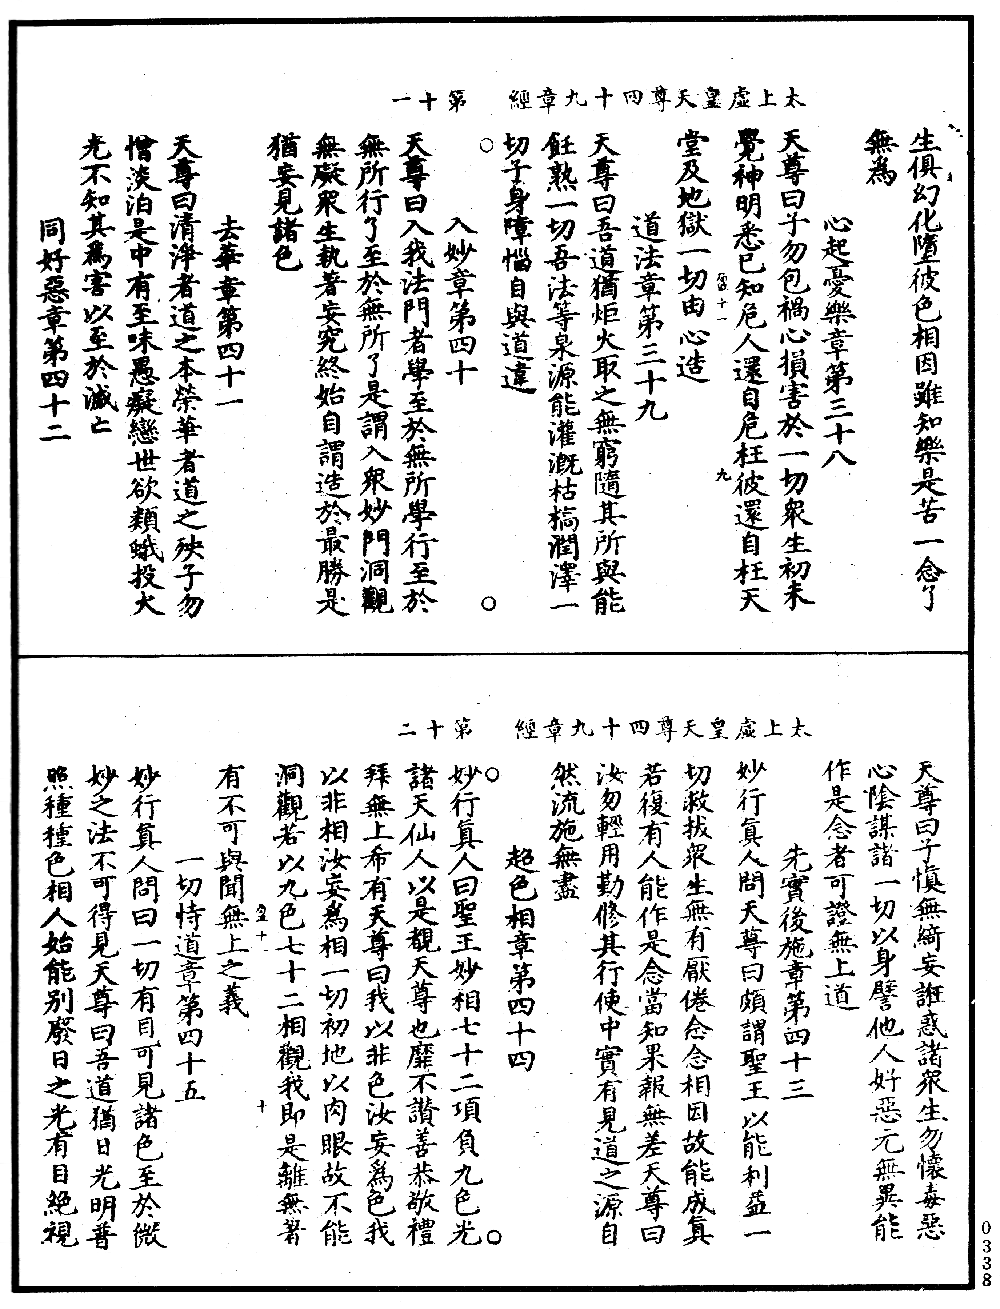 太上虛皇天尊四十九章經　第十一
生俱幻化墮彼色相因雖知樂是苦一念了
無為
心起憂樂章第三十八
天尊曰子勿包禍心損害於一切眾生初未
覺神明悉已知危人還自危枉彼還自枉天
堂及地獄一切由心造
道法章第三十九
天尊曰吾道猶炬火取之無窮隨其所與能
飪熟一切吾法等泉源能灌溉枯槁潤澤一
切子身障惱自與道違
入妙章第四十
天尊曰入我法門者學至於無所學行至於
無所行了至於無所了是謂入眾妙門洞觀
無礙眾生執著妄究終始自謂造於最勝是
猶妄見諸色
去華章第四十一
天尊曰清淨者道之本榮華者道之殃子勿
憎淡泊是中有至味愚癡戀世欲類蛾投火
光不知其為害以至於滅亡
同好惡章第四十二
太上虛皇天尊四十九章經　第十二
天尊曰子慎無綺妄誑惑諸眾生勿懷毒惡
心陰謀諸一切以身譬他人好惡元無異能
作是念者可證無上道
先實後施章第四十三
妙行真人問天尊曰頗謂聖王以能利益一
切救拔眾生無有厭倦念念相因故能成真
若復有人能作是念當知果報無差天尊曰
汝勿輕用勤修其行使中實有見道之源自
然流施無盡
超色相章第四十四
妙行真人曰聖王妙相七十二項負九色光
諸天仙人以是觀天尊也靡不讚善恭敬禮
拜無上希有天尊曰我以非色汝妄為色我
以非相汝妄為相一切初地以肉眼故不能
洞觀若以九色七十二相觀我即是離無著
有不可與聞無上之義
一切恃道章第四十五
妙行真人問曰一切有目可見諸色至於微
妙之法不可得見天尊曰吾道猶日光明普
照種種色相人始能別廢日之光有目絕視
0338